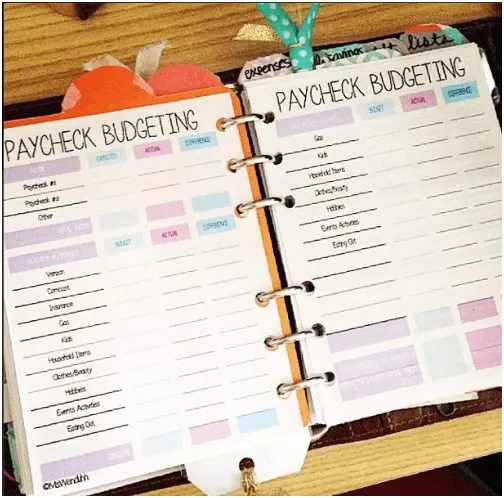 expenses
savings
lists
PAYCHECK BUDGETING
EXPECTED ACTUAL DIFFERENCE
Paycheck #1
Paycheck #2
Other
BUDGET ACTUAL DIFFERENCE
Verizon
Comcast
Insurance
Gas
Kids
Household Items
Clothes/Beauty
Hobbies
Events Activities
Eating Out
©MsWenduhh
PAYCHECK BUDGETING
BUDGET ACTUAL DIFFERENCE
Gas
Kids
Household Items
Clothes/Beauty
Hobbies
Events Activities
Eating Out